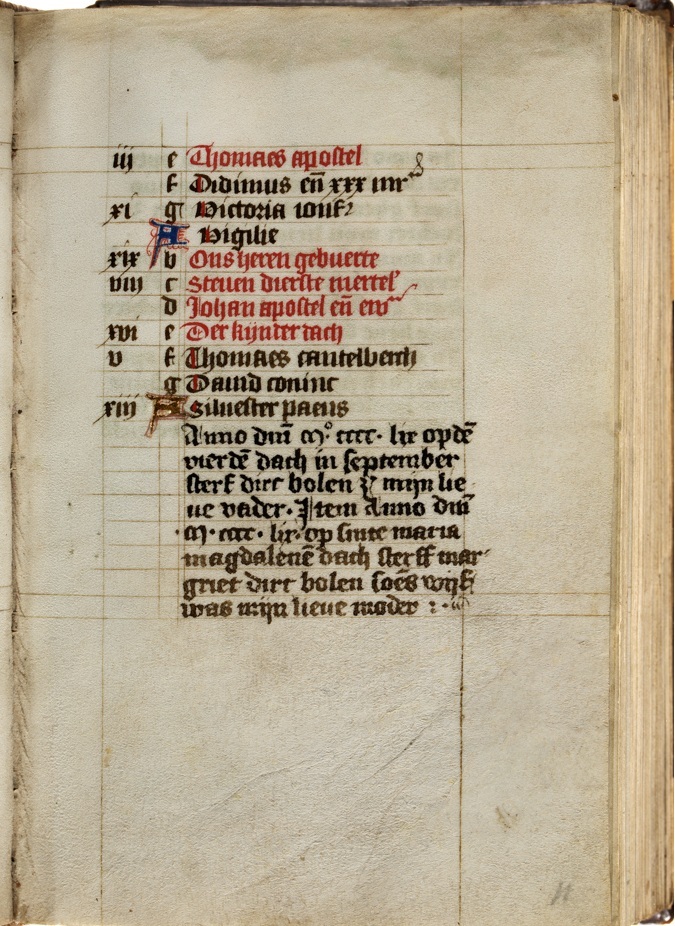 iii e Thomaes apostel
f Didimus en̄ xxx mr
xi g Victoria ionf
A Vigilie
xix b Ons heren gebuerte
viii c Steuen dierste mertel
d Johan apostel en̄ ew
xvi e Der kijnder dach
v f Thomaes cantelberch
g Dauid coninc
xiii A Siluester paeus
Anno dnī mͦ cccc. lix opdē
vierdē dach in september
sterf dirc bolen z mijn lie
ue vader. Item Anno dnī
.m. cccc. lix. op sinte maria
magdalenē dach sterff mar
griet dirc bolen soēs wijf
was mijn lieue moder